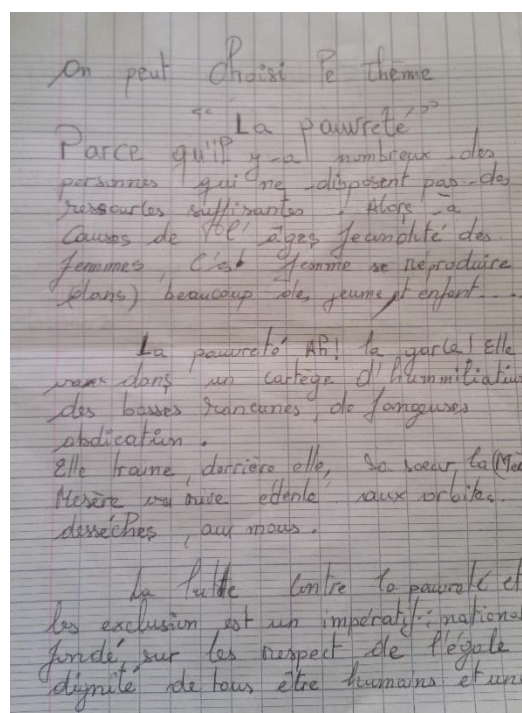 On peut choisi le thème
"La pauvreté"
Parce qu'il y-a nombreux des
personnes qui ne disposent pas des
ressources suffisantes. Alors à
causes de l' âges fecondité des
femmes, C'est femme se reproduire
(dans) beaucoup des jeume et enfant...
La pauvreté Ah! la garce! Elle
dans un cartège d'hummiliation
des basses rancunes, de fangeuses
abdication.
Elle traine, derrière elle, sa soeur, la (Mè
Mesère edenté aux orbites
desséches, aux
La lutte contre la pauvreté et
les exclusion est un impératif: national
fondé, sur les respect de l'égale
dignité de tous être humains et un